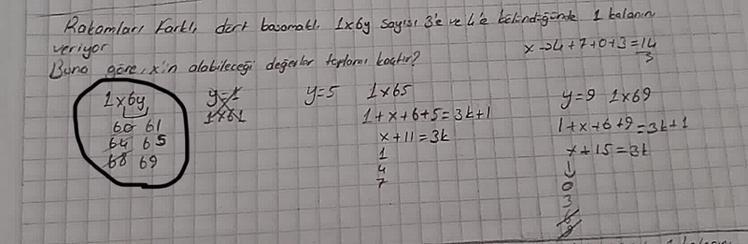 Rakamları farklı, dört basamaklı 1x6y sayısı 3'e ve 4'e bölündüğünde 1 kalanını
veriyor
Buna göre, x'in alabileceği değerler toplamı kaçtır?
x → 4+7+0+3=14
3
1x6y
60 61
64 65
68 69
y=1
1x61
y=5 1x65
1+x+6+5=3k+1
x+11=3k
1
4
7
y=9 1x69
1+x+6+9=3k+1
x+15=3k
↓
0
3
6
9